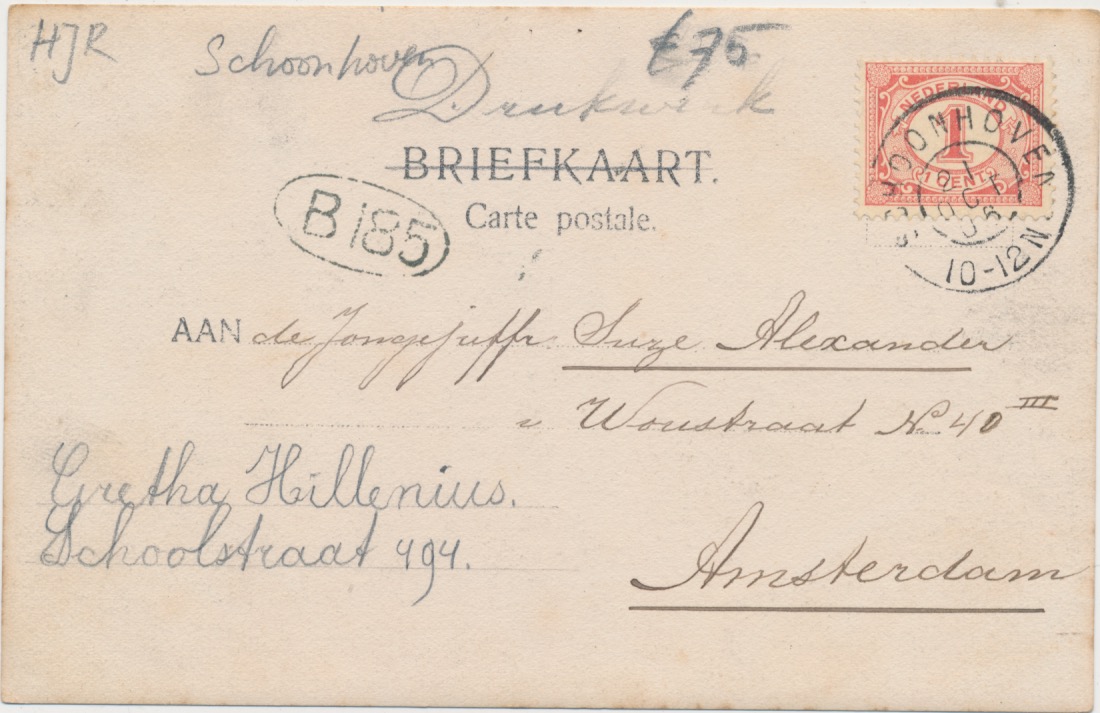 HJR
Schoonhoven
€75
Drukwerk
BRIEFKAART.
Carte postale.
NEDERLAND
1
1 CENT
SCHOONHOVEN
OCT
06
10-12N
B 185
AAN de Jongejuffr. Suze Alexander
Woustraat No 40 III
Gretha Hillenius.
Schoolstraat 494.
Amsterdam